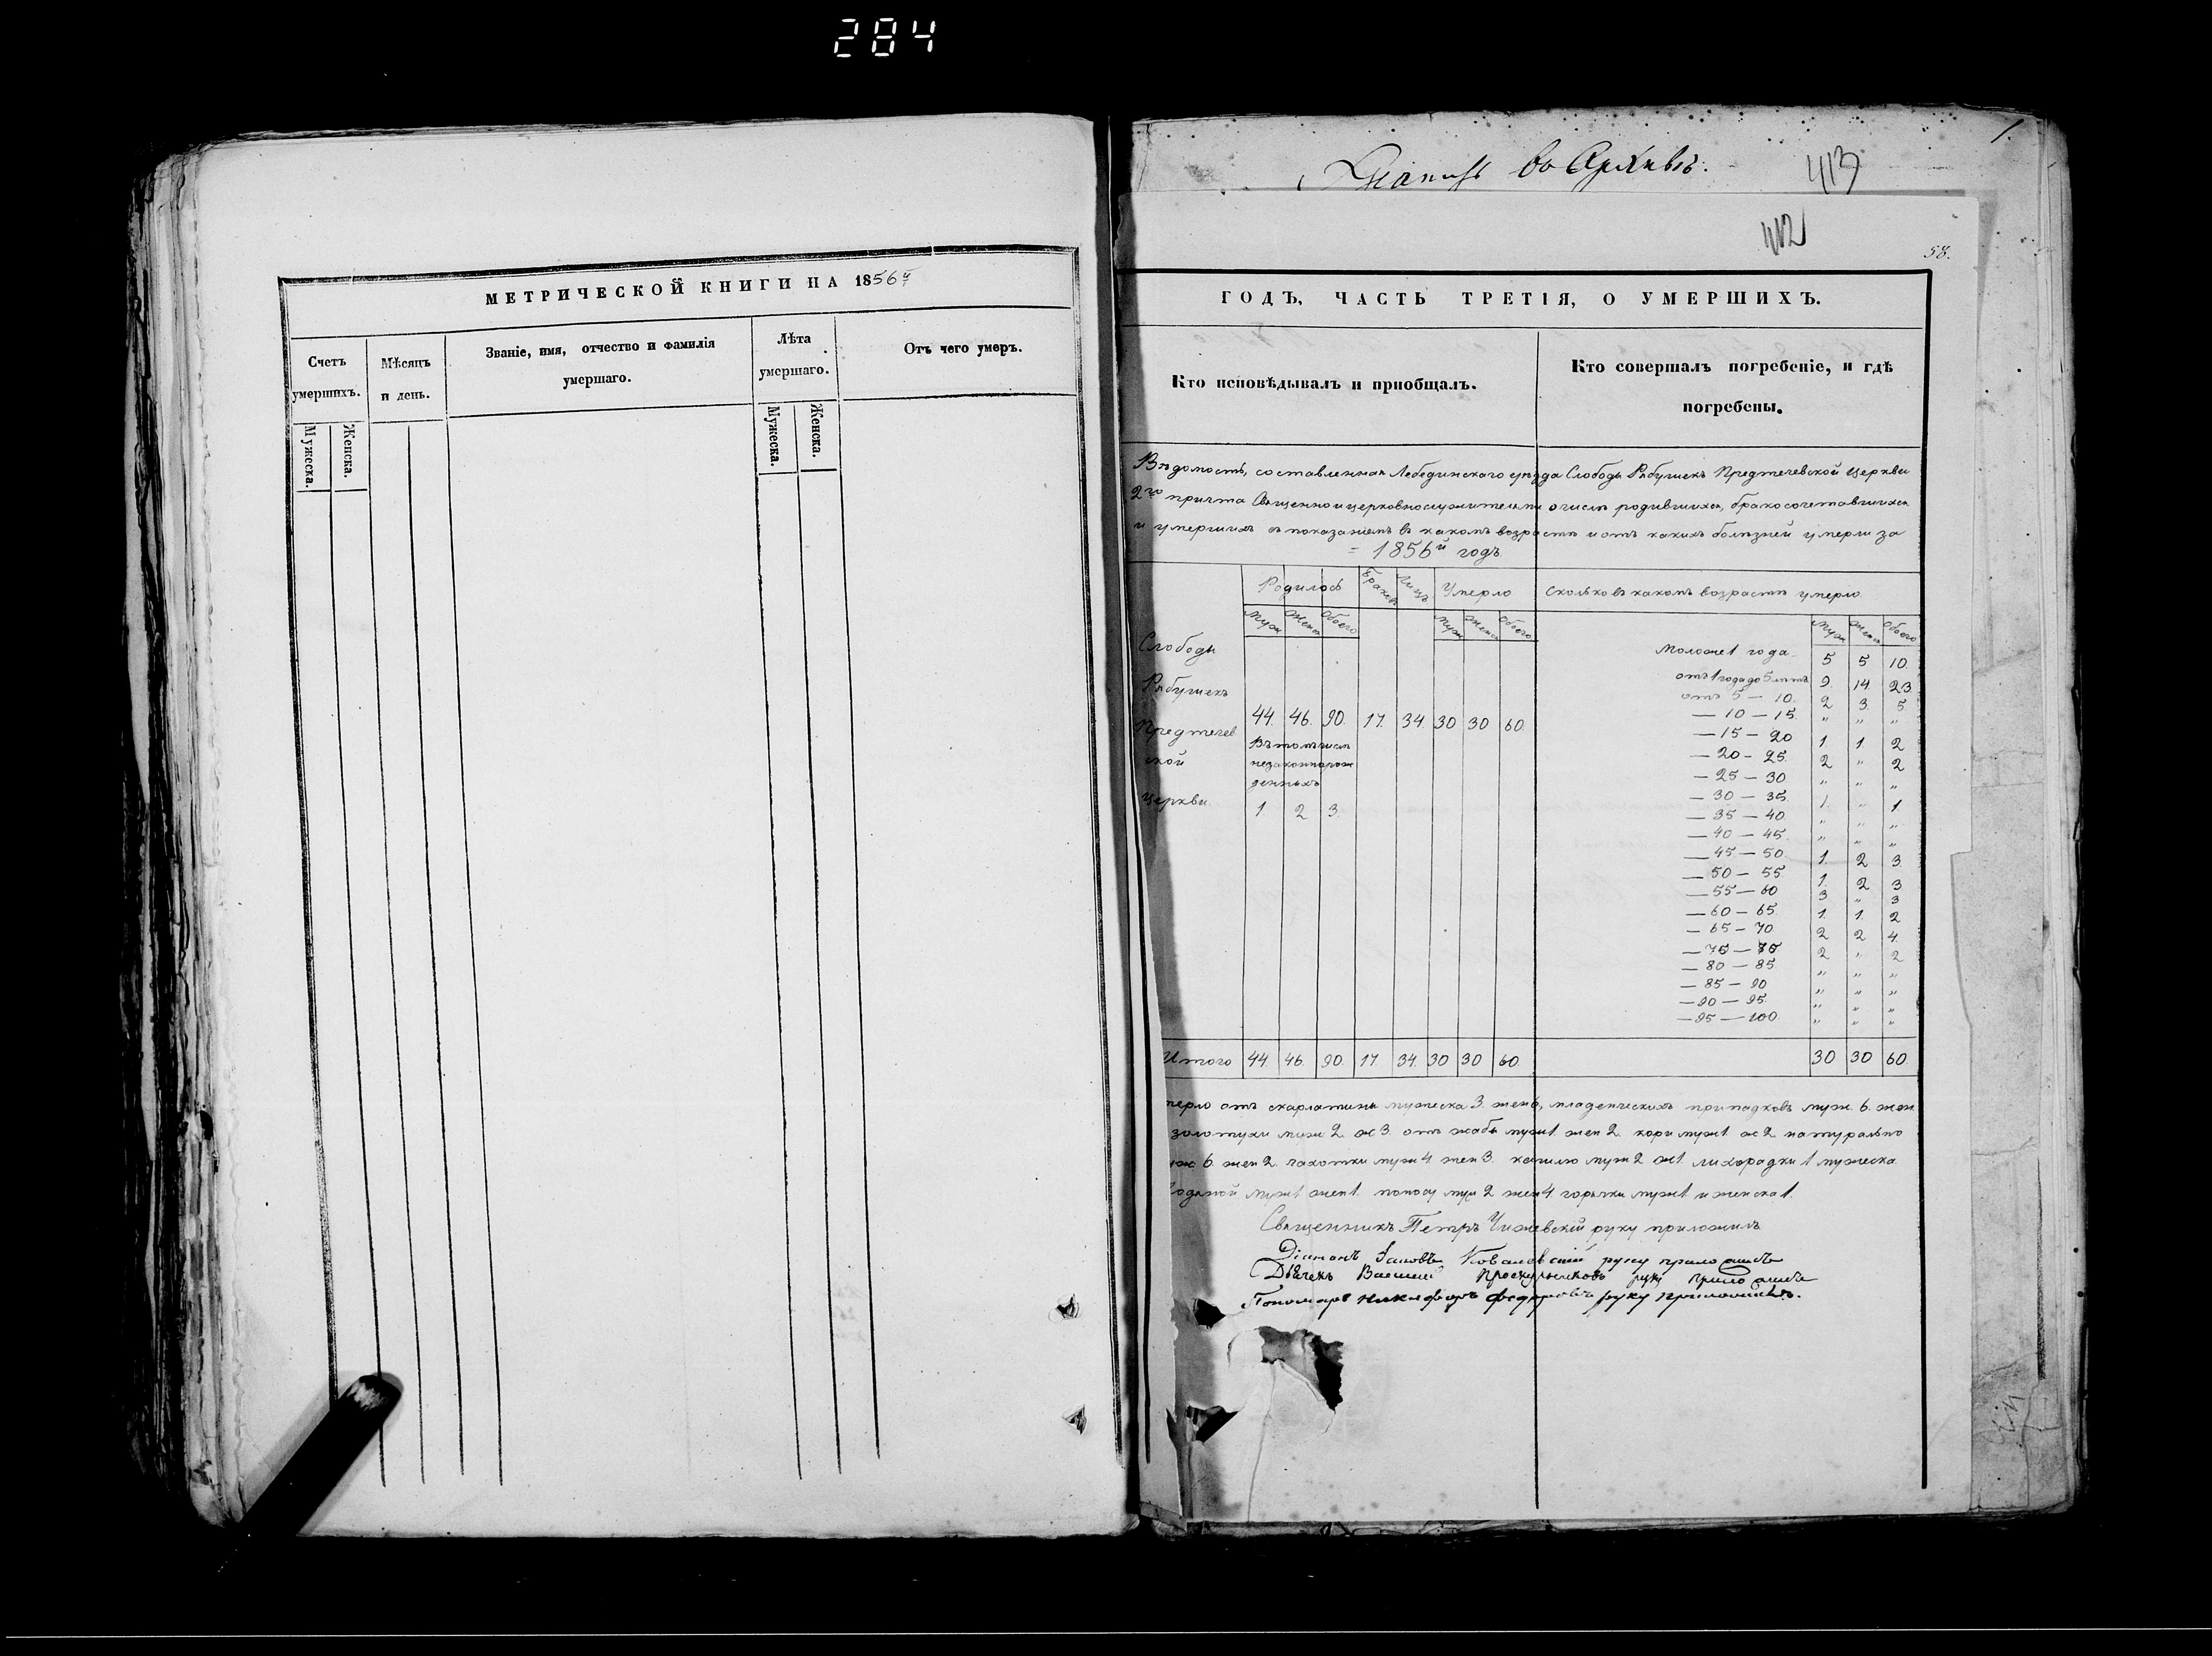 284
во Архивъ.
413
1.
412
58.
МЕТРИЧЕСКОЙ КНИГИ НА 1856й
Счетъ умершихъ.
Мѣсяцъ и день.
Званіе, имя, отчество и фамилія умершаго.
Лѣта умершаго.
Отъ чего умеръ.
Мужеска.
Женска.
Мужеска.
Женска.
ГОДЪ, ЧАСТЬ ТРЕТІЯ, О УМЕРШИХЪ.
Кто исповѣдывалъ и пріобщалъ.
Кто совершалъ погребеніе, и гдѣ погребены.
Вѣдомость, составленная Лебединскаго уѣзда Слободы Рябушекъ Предтечевской Церкви
2го причта Священноицерковнослужителями о числѣ родившихся, бракосочетавшихся
и умершихъ съ показаніемъ въ какомъ возрастѣ и отъ какихъ болѣзней умерли за
1856й годъ
Родилось Браковъ Лицъ Умерло Сколько въ какомъ возрастѣ умерло
Муж Женс Обоего Муж Женс Обоего Муж Женс Обоего
Слободы
Рябушекъ
Предтечев
ской
Церкви
44. 46. 90. 17. 34. 30 30 60.
Въ томъ числѣ
незаконнорож
денныхъ
1 2 3.
Моложе 1 года 5 5 10.
отъ 1 года до 5 лѣтъ 9. 14. 23.
отъ 5 — 10. 2 3. 5
— 10 — 15. " " "
— 15 — 20 1. 1. 2
— 20 — 25. 2 " 2
— 25 — 30 " " "
— 30 — 35. 1. " 1
— 35 — 40 " " "
— 40 — 45. " " "
— 45 — 50. 1. 2 3.
— 50 — 55 1. 2 3
— 55 — 60 3 " 3
— 60 — 65. 1. 1. 2
— 65 — 70 2 2 4.
— 75 2 " 2
— 80 — 85 " " "
— 85 — 90 " " "
— 90 — 95. " " "
— 95 — 100. " " "
Итого 44. 46. 90. 17. 34. 30 30 60. 30 30 60
мерло отъ скарлатины мужеска 3. жен 6, младенческихъ припадковъ муж. 6. жен.
золотухи муж 2. ж 3. отъ жабы муж 1. жен 2. кори муж 1. ж 2 натурально
6. жен 2. чахотки муж 4 жен 3. кашлю муж 2 ж 1. лихорадки 1 мужеска.
одяной муж 1 жен 1. поносу муж 2 жен 4 горячки муж 1 и женска 1.
Священникъ Петръ Чижевскій руку приложилъ
Діаконъ Іаковъ Ковалевскій руку приложилъ
Дьячекъ Василій руку приложилъ
Пономарь Никифоръ Федоровъ руку приложилъ.